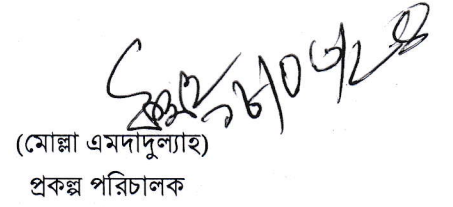 (মোল্লা এমদাদুল্যাহ)
প্রকল্প পরিচালক